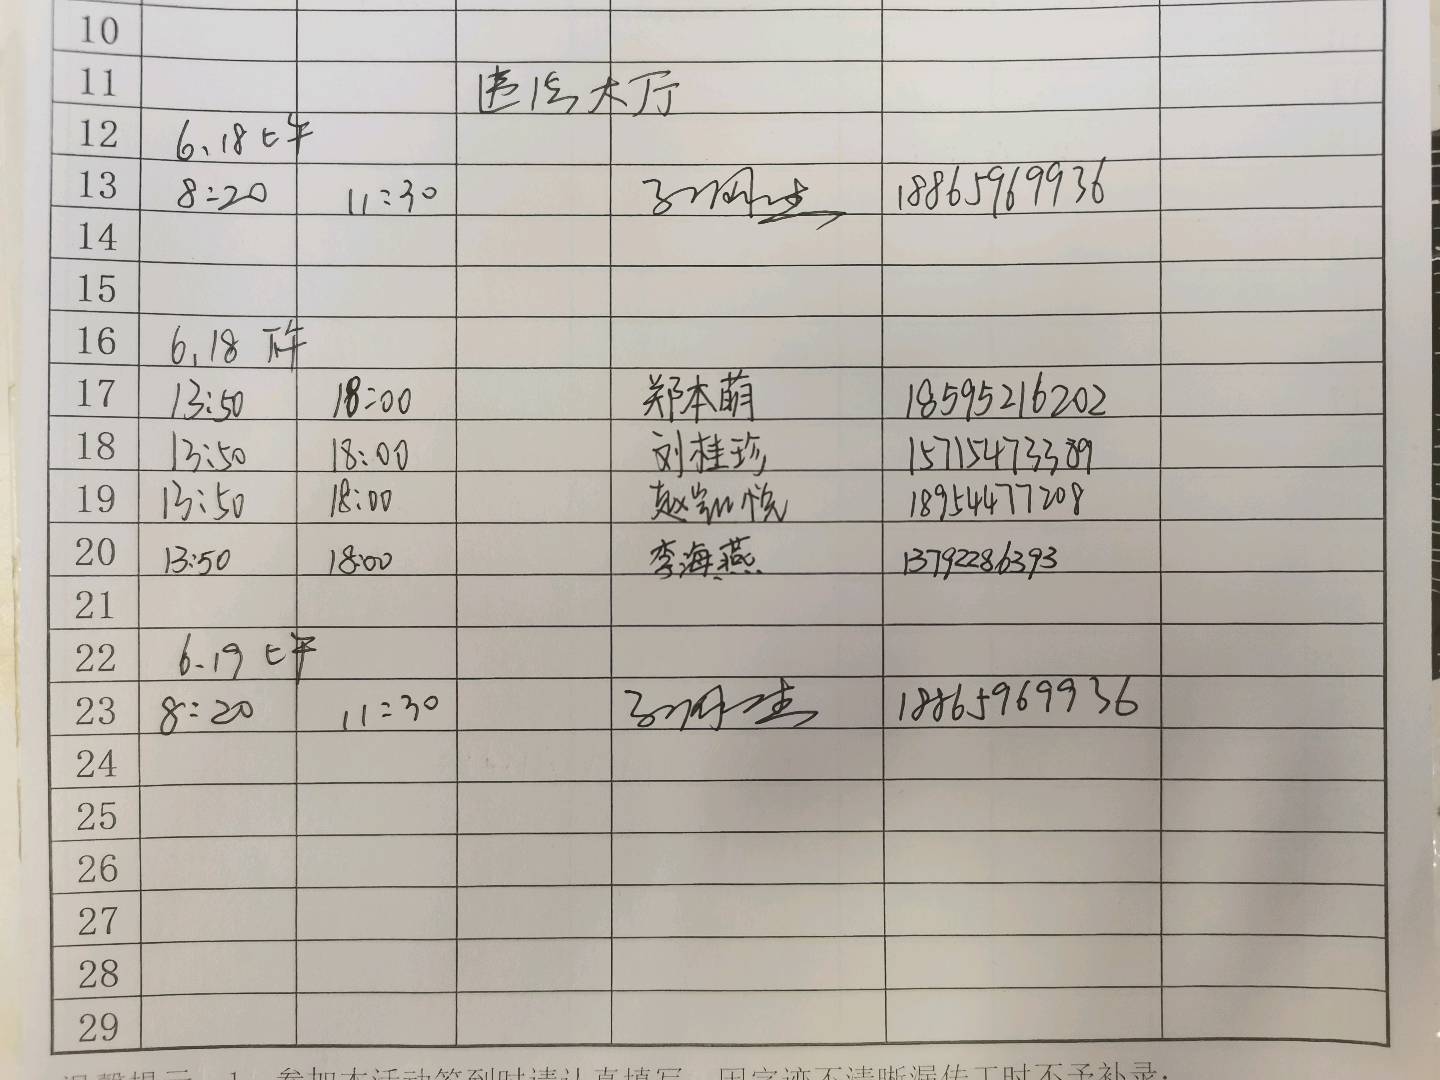 10
11 违法大厅
12 6.18 上午
13 8:20 11:30 18865969936
14
15
16 6.18 下午
17 13:50 18:00 郑本萌 18595216202
18 13:50 18:00 刘桂珍 15715473389
19 13:50 18:00 赵 悦 18954477208
20 13:50 18:00 李海燕 13792286393
21
22 6.19 上午
23 8:20 11:30 18865969936
24
25
26
27
28
29
温馨提示 1、参加本活动签到时请认真填写，因字迹不清晰漏传工时不予补录；